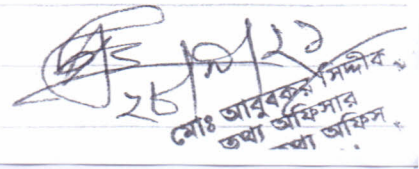 ২৮/৯/২১
মোঃ আবুবকর সিদ্দীক
তথ্য অফিসার
তথ্য অফিস